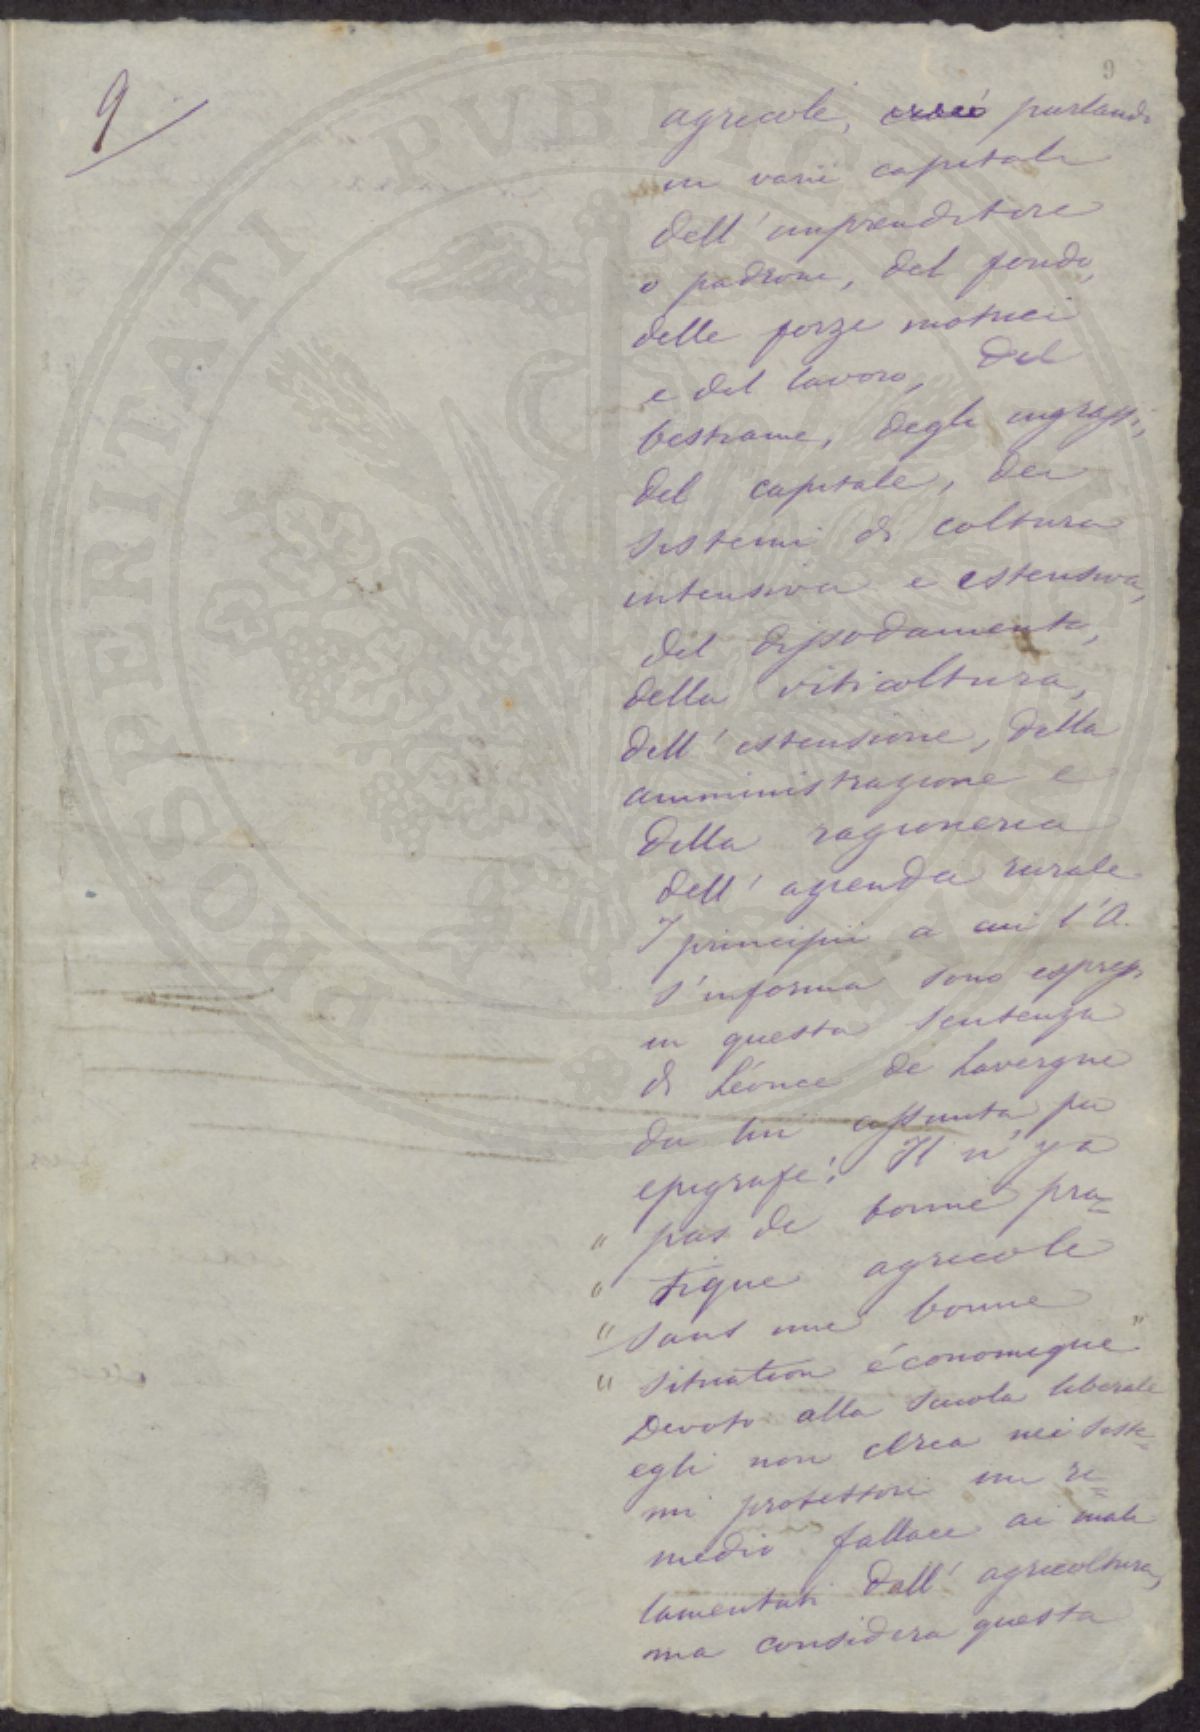 9
9
agricole, cioè parlando
in varii capitoli
dell'imprenditore
o padrone, del fondo,
delle forze motrici
e del lavoro, del
bestiame, degli ingrassi,
del capitale, dei
sistemi di coltura
intensiva e estensiva,
del dissodamento,
della viticoltura,
dell'estensione, della
amministrazione e
della ragioneria
dell'azienda rurale
I principii a cui l'A.
s'informa sono espressi
in questa sentenza
di Léonce de Lavergne
da lui assunta per
epigrafe: Il n'y a
" pas de bonne pra=
" tique agricole
" sans une bonne
" situation économique"
Devoto alla scuola liberale
egli non cerca nei siste=
mi protettori un re=
medio fallace ai mali
lamentati dall'agricoltura,
ma considera questa
PROSPERITATI PVBLICAE